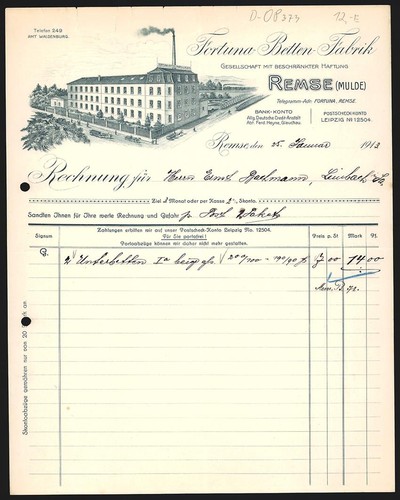 D-08373 12,-E
Telefon 249
AMT WALDENBURG.
Fortuna-Betten-Fabrik
GESELLSCHAFT MIT BESCHRÄNKTER HAFTUNG
REMSE (MULDE)
Telegramm-Adr. FORTUNA, REMSE.
BANK-KONTO
Allg. Deutsche Credit-Anstalt
Abt. Ferd. Heyne, Glauchau.
POSTSCHECK-KONTO
LEIPZIG Nº 12504.
Remse, den 25. Januar 1913
Rechnung für Herrn Ernst Bachmann, Limbach Sa.
Ziel 1 Monat oder per Kasse 2% Skonto.
Sandten Ihnen für Ihre werte Rechnung und Gefahr p. Post Paket
Signum
Zahlungen erbitten wir auf unser Postscheck-Konto Leipzig No. 12504.
Für Sie portofrei!
Portoabzüge können wir daher nicht mehr gestatten.
Preis p. St Mark Pf.
G. 2 Unterbetten Ia 200/100 - 140/90 7.00 14.00
Skontoabzüge gewähren nur von 20 Mark an